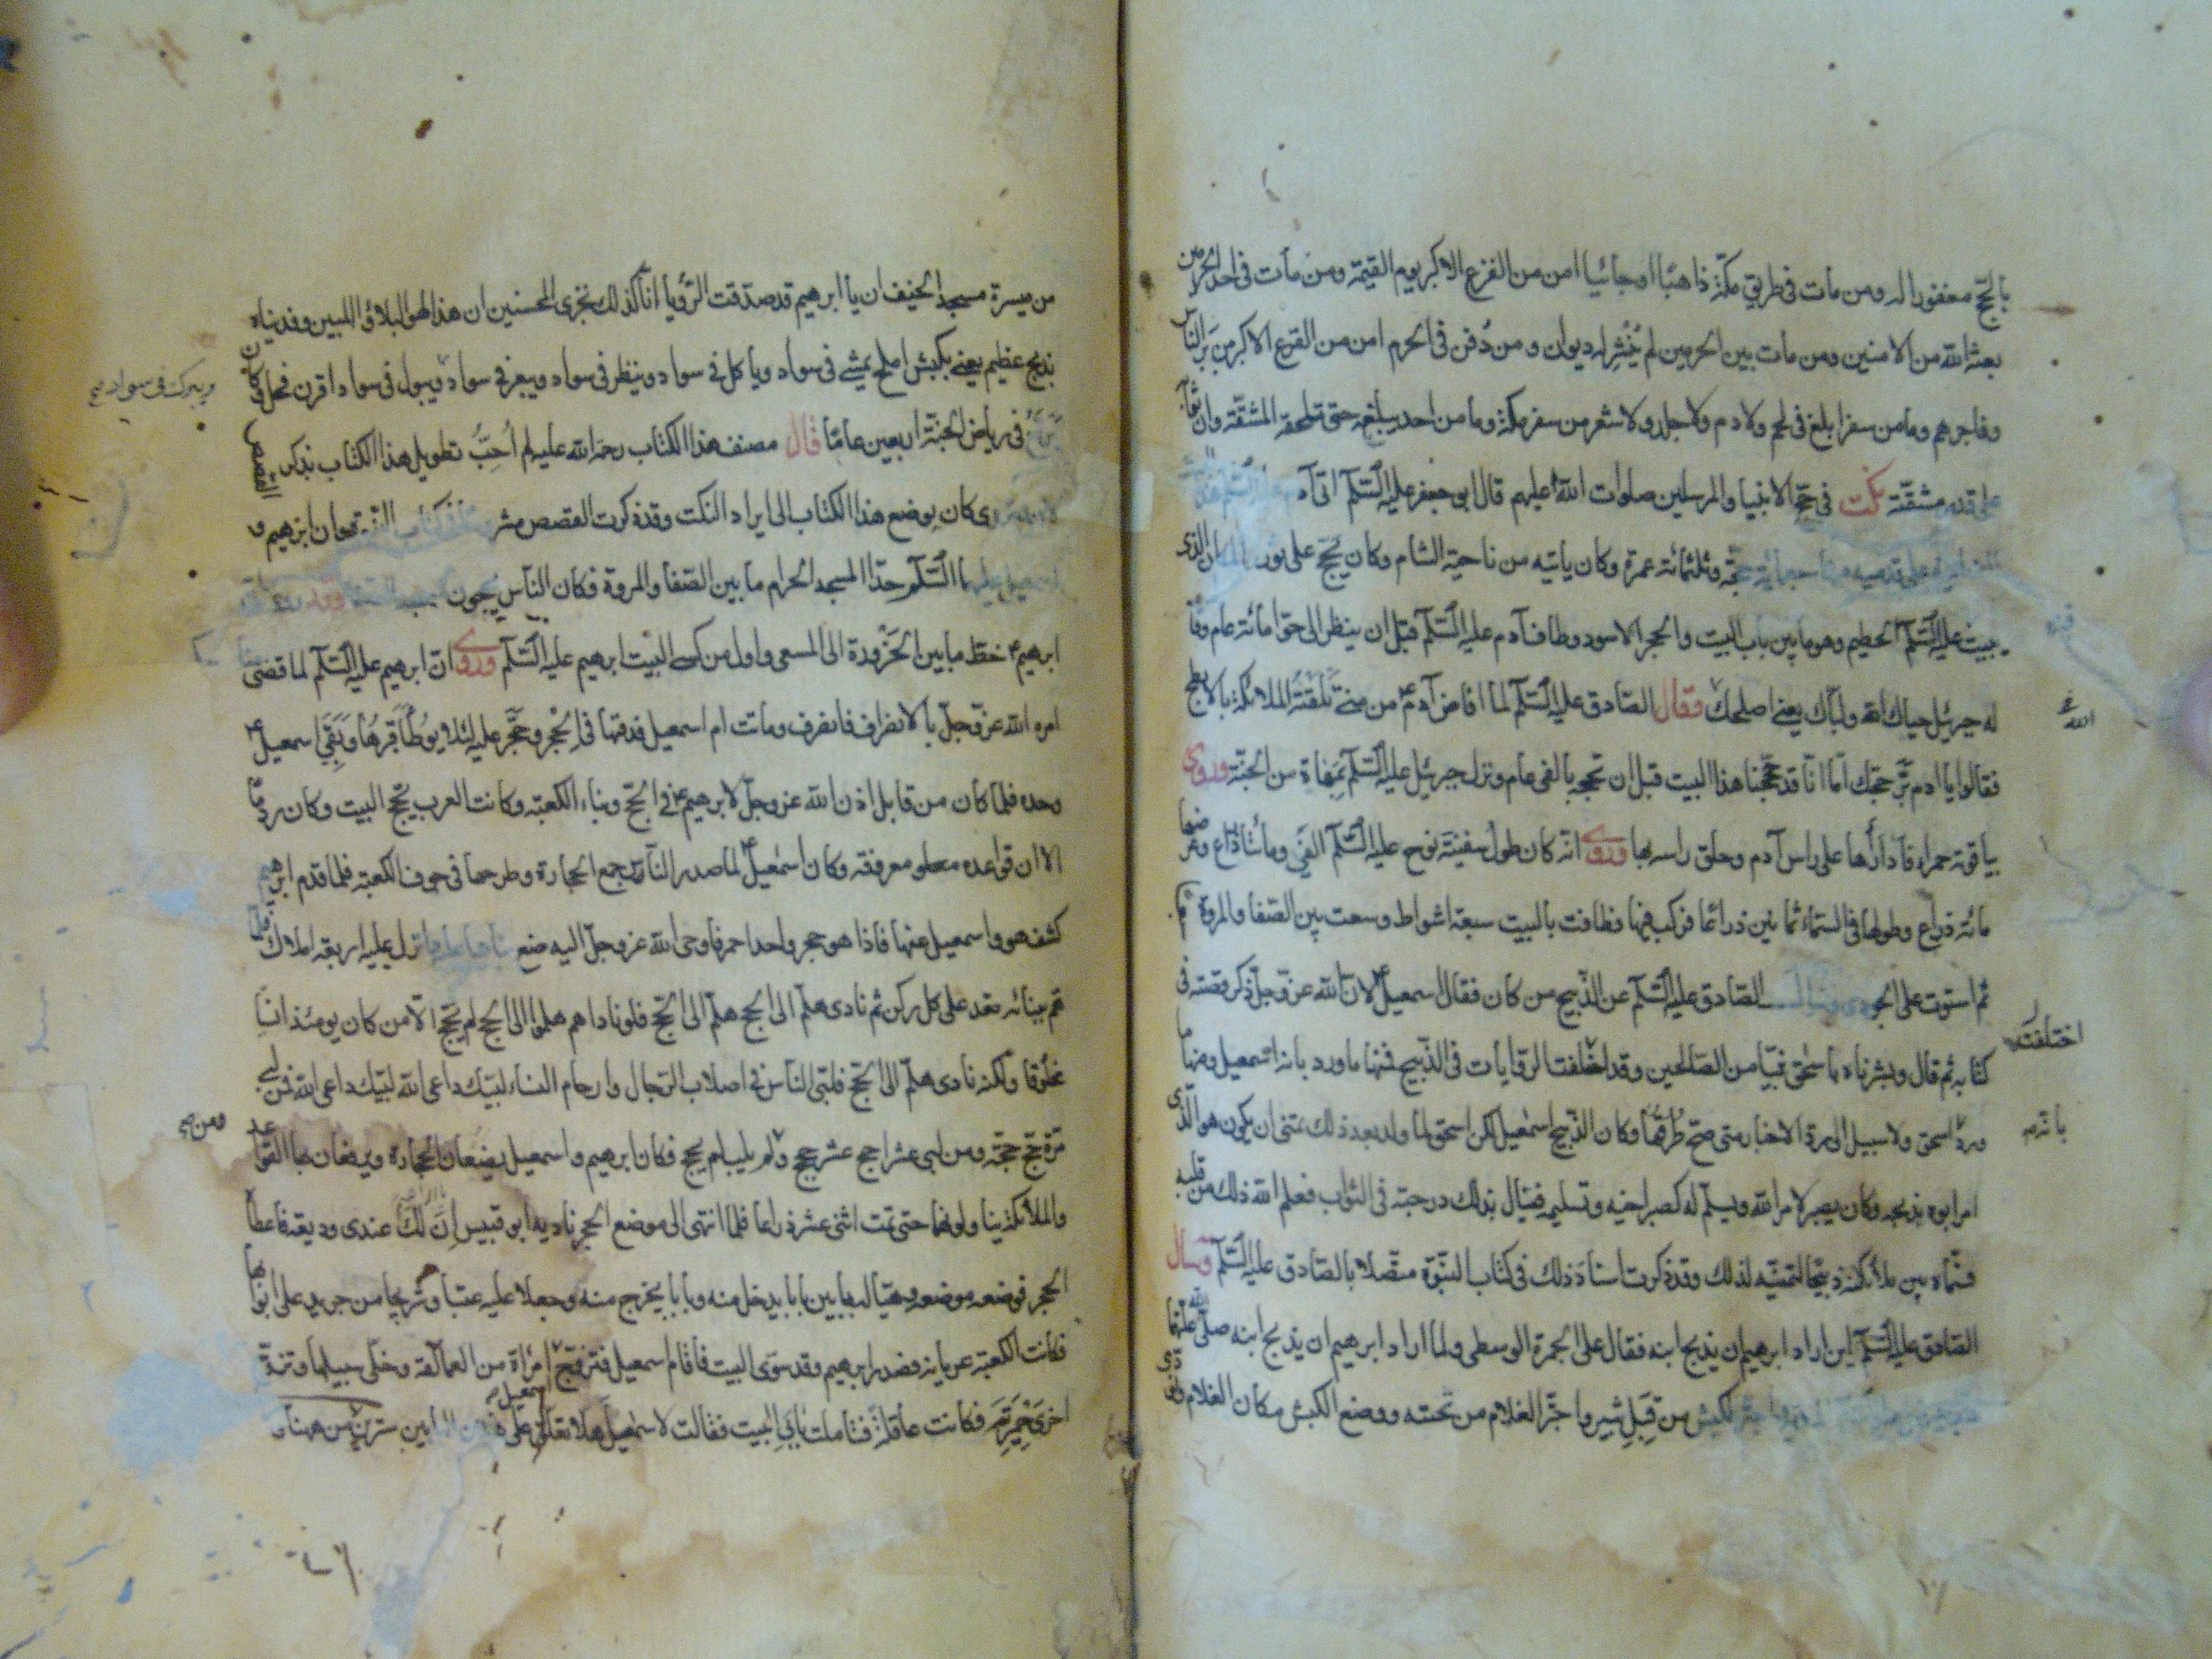 بالحج مغفورا له ومن مات في طريق مكة ذاهبًا او جائيا امن من الفزع الاكبر يوم القيمة ومن مات في احد الحرمين
بعثه الله من الامنين ومن مات بين الحرمين لم يُنشر له ديوان ومن دُفن في الحرم امن من الفزع الاكبر من بَرّ الناس
وفاجرهم وما من سفر ابلغ في لحم ولا دم ولا جلد ولا شعر من سفر مكة وما من احد يبلغه حتى تلحقه المشقّة وان ثوابه
على قدر مشقّته نكت في حج الانبيا والمرسلين صلوات الله عليهم قال ابي جعفر عليه السّلم اتى آدم
على قدميه منها سبعمائة حجّة وثلثمائة عمرة وكان ياتيه من ناحية الشام وكان يحجّ على ثور المكان الذي
يبيت عليه السّلم الحطيم وهو ما بين باب البيت والحجر الاسود وطاف آدم عليه السّلم قبل ان ينظر الى حوّا مائة عام وقال
له جبرئيل حياك الله ولبّاك يعني اصلحك فقال الصّادق عليه السّلم لما افاض آدم من منى تلقته الملائكة بالابطح
الله
فقالوا يا ادم بُرّ حجّك اما انّا قد حججنا هذا البيت قبل ان تحجه بالفي عام ونزل جبرئيل عليه السّلم بمهاة من الجنّة وروى
بياقوتة حمراء فادارها على راس آدم وحلق راسه بها وروى انه كان طول سفينة نوح عليه السّلم الفي ومائتا ذراع وعرضها
مائة ذراع وطولها في السّماء ثمانين ذراعًا فركب فيها فطافت بالبيت سبعة اشواط وسعت بين الصّفا والمروة
ثم استوت على الجودي وسال الصّادق عليه السّلم عن الذّبيح من كان فقال اسمعيل لان الله عزّ وجلّ ذكر قصته في
كتابه ثم قال وبشرناه باسحق نبيّا من الصّالحين وقد اختلفت الرّوايات في الذّبيح فمنها ما ورد بانه اسمعيل ومنها ما
اختلفت
ورد اسحق ولا سبيل الى رد الاخبار متى صحّ طرقها وكان الذّبيح اسمعيل لكن اسحق لما ولد بعد ذلك تمنى ان يكون هو الّذي
بانه
امر ابوه بذبحه وكان يصبر لامر الله ويسلّم له كصبر اخيه وتسليمه فينال بذلك درجته في الثواب فعلم الله ذلك من قلبه
فسّماه بين ملائكته ذبيحًا لتمنّيه لذلك وقد ذكرت اسناد ذلك في كتاب النبوّة متّصلا بالصّادق عليه السّلم وسال
الصّادق عليه السّلم اين اراد ابرهيم ان يذبح ابنه فقال على الجمرة الوسطى ولما اراد ابرهيم ان يذبح ابنه صلى الله عليهما
الكبش من قِبَلِ ثبير واجترّ الغلام من تحته ووضع الكبش مكان الغلام ونودي
من ميسرة مسجد الخيف ان يا ابرهيم قد صدقت الرّؤيا انا كذلك نجزي المحسنين ان هذا لهو البلاؤ المبين وفديناه
بذبح عظيم يعني بكبش املح يمشي في سواد وياكل في سواد وينظر في سواد ويبعر في سواد ويبول في سواد اقرن فحل وكان
ويبرك في سواد صح
يرتع في رياض الجنّة اربعين عامًا قال مصنف هذا الكتاب رحمه الله عليه لم اُحِبُّ تطويل هذا الكتاب بذكر القصص
كان يوضع هذا الكتاب الى ايراد النكت وقد ذكرت القصص ان ابرهيم و
عليهما السّلم حدّا المسجد الحرام ما بين الصّفا والمروة فكان النّاس يحجون
ابرهيم خط ما بين الحَزْوَرة الى المسعى واول من كسى البيت ابرهيم عليه السّلم وروى انّ ابرهيم عليه السّلم لما قضى
امره الله عزّ وجلّ بالانصراف فانصرف وماتت ام اسمعيل فدفنها في الحِجر وحجّر عليه لئلا يوطأ قبرها وبقي اسمعيل
وحده فلما كان من قابل اذن الله عز وجلّ لابرهيم في الحجّ وبناء الكعبة وكانت العرب تحج البيت وكان ردمًا
الا ان قواعده معرفة وكان اسمعيل لما صدر النّاس جمع الحجارة وطرحها في جوف الكعبة فلما قدم ابرهيم
كشف هو واسمعيل عنها فاذا هو حجر واحد احمر فاوحى الله عز وجلّ اليه ضع بناها عليه وانزل عليه اربعة املاك فلما
تم بنائه قعد على كل ركن ثم نادى هلمّ الى الحج هلمّ الى الحجّ فلو ناداهم هلموا الى الحج لم يحجّ الّا من كان يومئذ انسيًا
مخلوقا ولكنه نادى هلمّ الى الحجّ فلبّى الناس في اصلاب الرّجال وارحام النساء لبيّك داعي الله لبيّك داعي الله فمن لبى
مرّة حجّ حجّة ومن لبى عشرا حج عشر حجج ومن لم يلبّ لم يحج فكان ابرهيم واسمعيل يضعان الحجارة ويرفعان بها القواعد
ومن صح
والملائكة يناولونهما حتى تمت اثني عشر ذراعا فلما انتهى الى موضع الحجر ناديه ابو قبيس اِنَّ لَكَ عندي وديعة فاعطاه
الحجر فوضعه موضعه وهيّا له بابين بابا يدخل منه وبابا يخرج منه وجعلا عليه عتبا وشريجا من جريد على ابوابها
فكانت الكعبة عريانة فصدر ابرهيم وقد سوّى البيت فاقام اسمعيل فتزوّج امراة من العمالقة وخلّى سبيلها وتزوّج
اخرى حِمْيَرِيّة فكانت عاقلة فتاملت بابي البيت فقالت لاسمعيل هلا تعلق على سترين من ههنا و